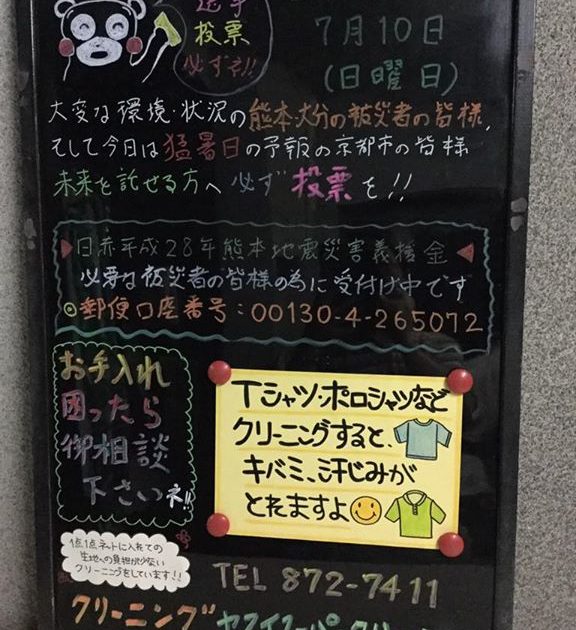 選挙
投票
必ずネ!!
7月10日
(日曜日)
大変な環境・状況の熊本大分の被災者の皆様、
そして今日は猛暑日の予報の京都市の皆様
未来を託せる方へ必ず投票を!!
日赤平成28年熊本地震災害義援金
必要な被災者の皆様の為に受付け中です
◎郵便口座番号:00130-4-265072
お手入れ
困ったら
御相談
下さいネ!!
Tシャツ・ポロシャツなど
クリーニングすると、
キバミ、汗じみが
とれますよ
1点1点ネットに入れての
生地への負担が少ない
クリーニングをしています!!
TEL 872-7411
クリーニング